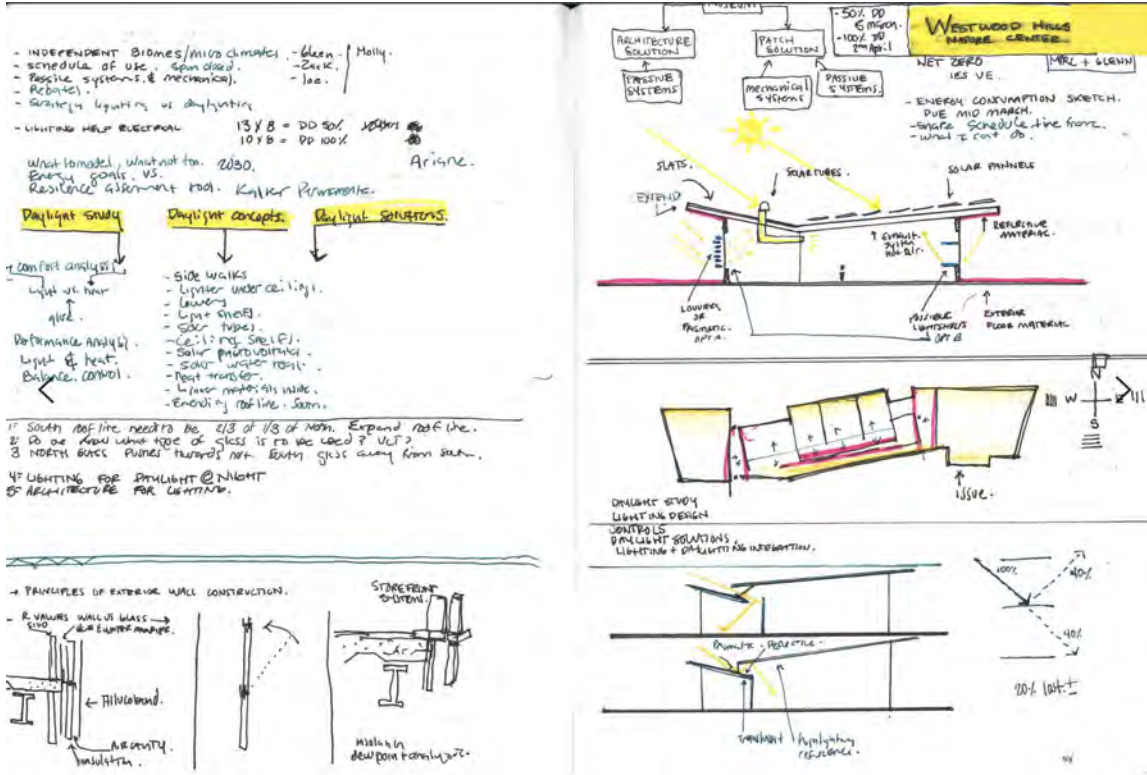 - INDEPENDENT BIOMES/MICRO CLIMATES
- SCHEDULE OF USE.
- Passive systems & mechanical.
- Rebates.
- Strategy lighting vs daylighting
- Gleen.
- Zack.
- Joe.
Molly.
- LIGHTING HELP ELECTRICAL
13 X 8 = DD 50%
10 X 8 = DD 100%
2030.
Energy goals. VS.
Ariane.
Daylight Study
Daylight concepts.
Daylight Solutions.
comfort analysis
light vs. heat
glare.
Performance Analysis.
Light & heat.
Balance. control.
- Side walks
- Lighter under ceilings.
- Louvers
- Light shelfs.
- Solar tubes.
- Ceiling shelfs.
- Solar photovoltaics.
- Solar water
- Heat transfer.
- Extending roofline. South.
1- South roof line need to be 2/3 of 1/3 of North. Expand roof line.
2- Do we know what type of glass is to be used? VLT?
3 NORTH GLASS PUSHES towards not. South glass away from South.
4- LIGHTING FOR DAYLIGHT @ NIGHT
5- ARCHITECTURE FOR LIGHTING.
→ PRINCIPLES OF EXTERIOR WALL CONSTRUCTION.
- R VALUES WALL VS GLASS
← Allucobond.
AIR CAVITY.
insulation.
STOREFRONT SYSTEMS.
dewpoint analysis.
MUSEUM
ARCHITECTURE
SOLUTION
PASSIVE
SYSTEMS
PATCH
SOLUTION
mechanical
SYSTEMS
PASSIVE
SYSTEMS
- 50% DD
6 march.
- 100% DD
2nd April
WESTWOOD HILLS
NATURE CENTER
NET ZERO
IES VE.
- ENERGY CONSUMPTION SKETCH.
DUE MID MARCH.
- Share Schedule time frame.
- What I can't do.
SLATS.
EXTEND
SOLAR TUBES
SOLAR PANNELS
EXHAUST
SYSTEM
HOT AIR.
REFLECTIVE
MATERIAL.
LOUVERS
OR
PRISMATIC.
OPT A.
POSSIBLE
LIGHTSHELFS
OPT B
EXTERIOR
FLOOR MATERIAL
N
W
E
S
ISSUE.
DAYLIGHT STUDY
LIGHTING DESIGN
CONTROLS
DAYLIGHT SOLUTIONS.
LIGHTING + DAYLIGHTING INTEGRATION.
100%
40%
40%
20% lost.
Prismatic